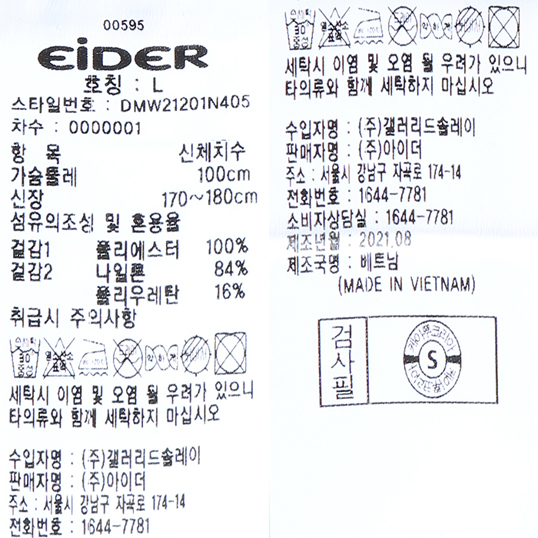 00595
EiDER
호칭 : L
스타일번호 : DMW21201N405
차수 : 0000001
항 목 신체치수
가슴둘레 100cm
신장 170~180cm
섬유의조성 및 혼용율
겉감1 폴리에스터 100%
겉감2 나일론 84%
폴리우레탄 16%
취급시 주의사항
세탁시 이염 및 오염 될 우려가 있으니
타의류와 함께 세탁하지 마십시오
수입자명 : (주)갤러리드솔레이
판매자명 : (주)아이더
주소 : 서울시 강남구 자곡로 174-14
전화번호 : 1644-7781
세탁시 이염 및 오염 될 우려가 있으니
타의류와 함께 세탁하지 마십시오
수입자명 : (주)갤러리드솔레이
판매자명 : (주)아이더
주소 : 서울시 강남구 자곡로 174-14
전화번호 : 1644-7781
소비자상담실 : 1644-7781
제조년월 : 2021.08
제조국명 : 베트남
(MADE IN VIETNAM)
검사필
S